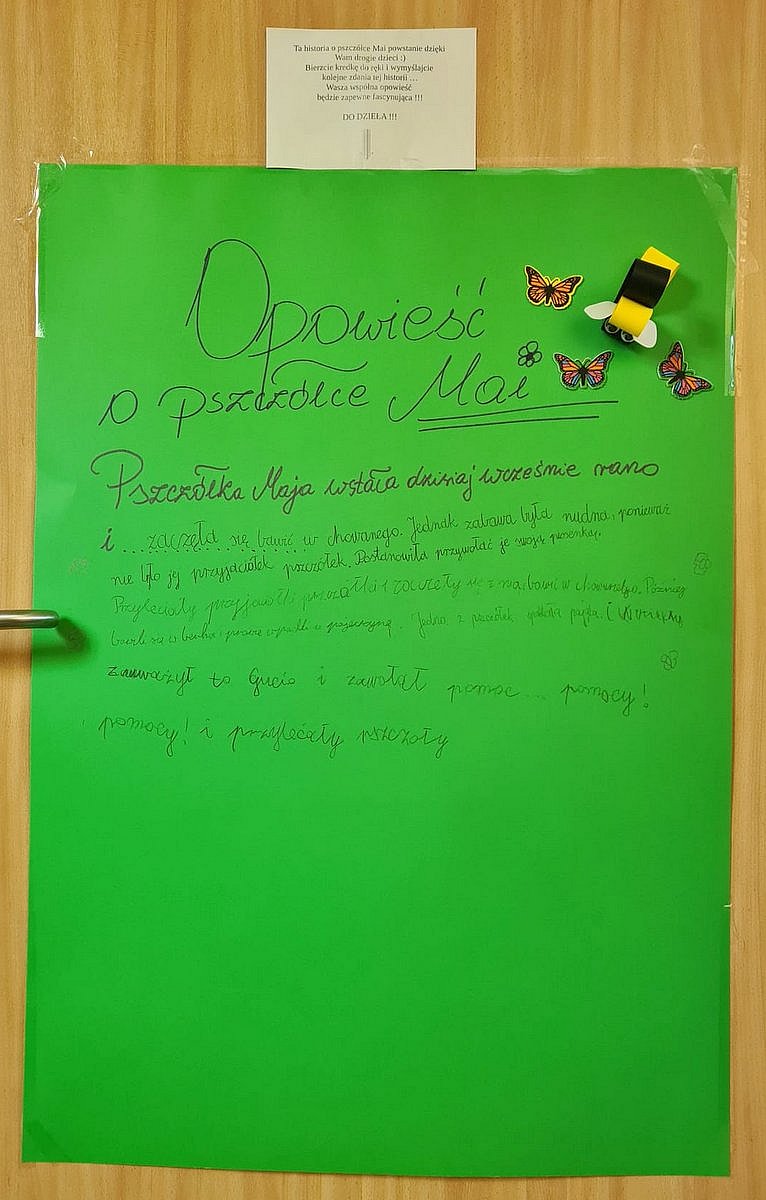 Ta historia o pszczółce Mai powstanie dzięki
Wam drogie dzieci :)
Bierzcie kredkę do ręki i wymyślajcie
kolejne zdania tej historii ...
Wasza wspólna opowieść
będzie zapewne fascynująca !!!
DO DZIEŁA !!!
Opowieść
o pszczółce Mai
Pszczółka Maja wstała dzisiaj wcześnie rano
i ...zaczęła się bawić w chowanego. Jednak zabawa była nudna, ponieważ
nie było jej przyjaciółek pszczółek. Postanowiła przywołać je swoją piosenką.
Przyleciały przyjaciółki pszczółki i zaczęły się z nią bawić w chowanego. Później
bawili się w berka i prawie wpadli w pajęczynę. Jedna z pszczółek
Zauważył to Gucio i zawołał pomoc... pomocy!
pomocy! i przyleciały pszczoły